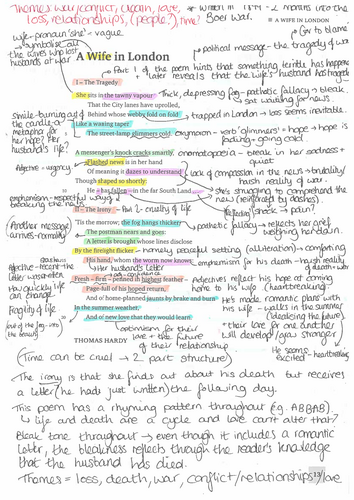 Themes: war/conflict, death, love, loss, relationships, (people?), time?
* Written in 1899 - 2 months into the Boer war.
A WIFE IN LONDON
wife - pronoun 'she' - vague
↳ symbolise all the wives who lost husbands at war
Gov to blame
political message - the tragedy of war
A Wife in London
Part 1 of the poem hints that something terrible has happened
later reveals that the wife's husband has tragedy
I – The Tragedy
She sits in the tawny vapour
Thick, depressing fog - pathetic fallacy → bleak,
That the City lanes have uprolled,
sat waiting for news.
Behind whose webby fold on fold
→ trapped in London → loss seems inevitable.
Simile - burning out of the candle or metaphor for her hope? Her husband's life?
Like a waning taper
The street-lamp glimmers cold.
oxymoron - verb 'glimmers' = hope → hope is fading - going cold
A messenger's knock cracks smartly,
onomatopoeia - break in her sadness + quiet
Adjective - urgency
Flashed news is in her hand
Of meaning it dazes to understand
Lack of compassion in the news → brutality/ harsh reality of war
Though shaped so shortly:
He – has fallen – in the far South Land...
→ she's struggling to comprehend the new (reinforced by dashes).
euphemism - respectful ways of breaking the news
Reflecting shock → pain?
II – The Irony
Part 2 - cruelty of life
'Tis the morrow; the fog hangs thicker,
→ pathetic fallacy → reflects her grief weighing her down.
Another message arrives - normality
The postman nears and goes:
A letter is brought whose lines disclose
By the firelight flicker
→ normally, peaceful setting (alliteration) → comforting
His hand, whom the worm now knows:
euphemism for his death - harsh reality of death + war
Her husbands letter
Fresh – firm – penned in highest feather –
Adjectives reflect his hope at coming home to his wife (heartbreaking)
Page-full of his hoped return,
How quickly life can change
And of home-planned jaunts by brake and burn
He's made romantic plans with his wife - walks in the summer (idealizing the future)
Fragility of life
In the summer weather,
And of new love that they would learn.
+ their love for one another will develop/grow stronger
He seems excited - heartbreaking
THOMAS HARDY
optimism for their love + the future of their relationship
(Time can be cruel → 2 part structure)
The irony is that she finds out about his death but receives
a letter (he had just written) the following day.
This poem has a rhyming pattern throughout (e.g. ABBAB).
↳ life and death are a cycle and love can't alter that?
Bleak tone throughout → even though it includes a romantic
letter, the bleakness reflects through the reader's knowledge
that the husband has died.
Themes = loss, death, war, conflict/relationships/love
13